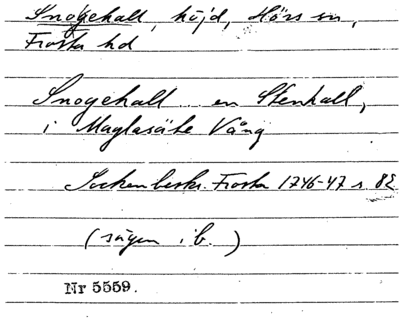 Snogehall, höjd, Hörs sn,
Frosta hd
Snogehall en Stenhall,
i Maglasäte Vång
Sockenbeskr. Frosta 1746-47 s. 82
(sägen i b.)
Nr 5559.